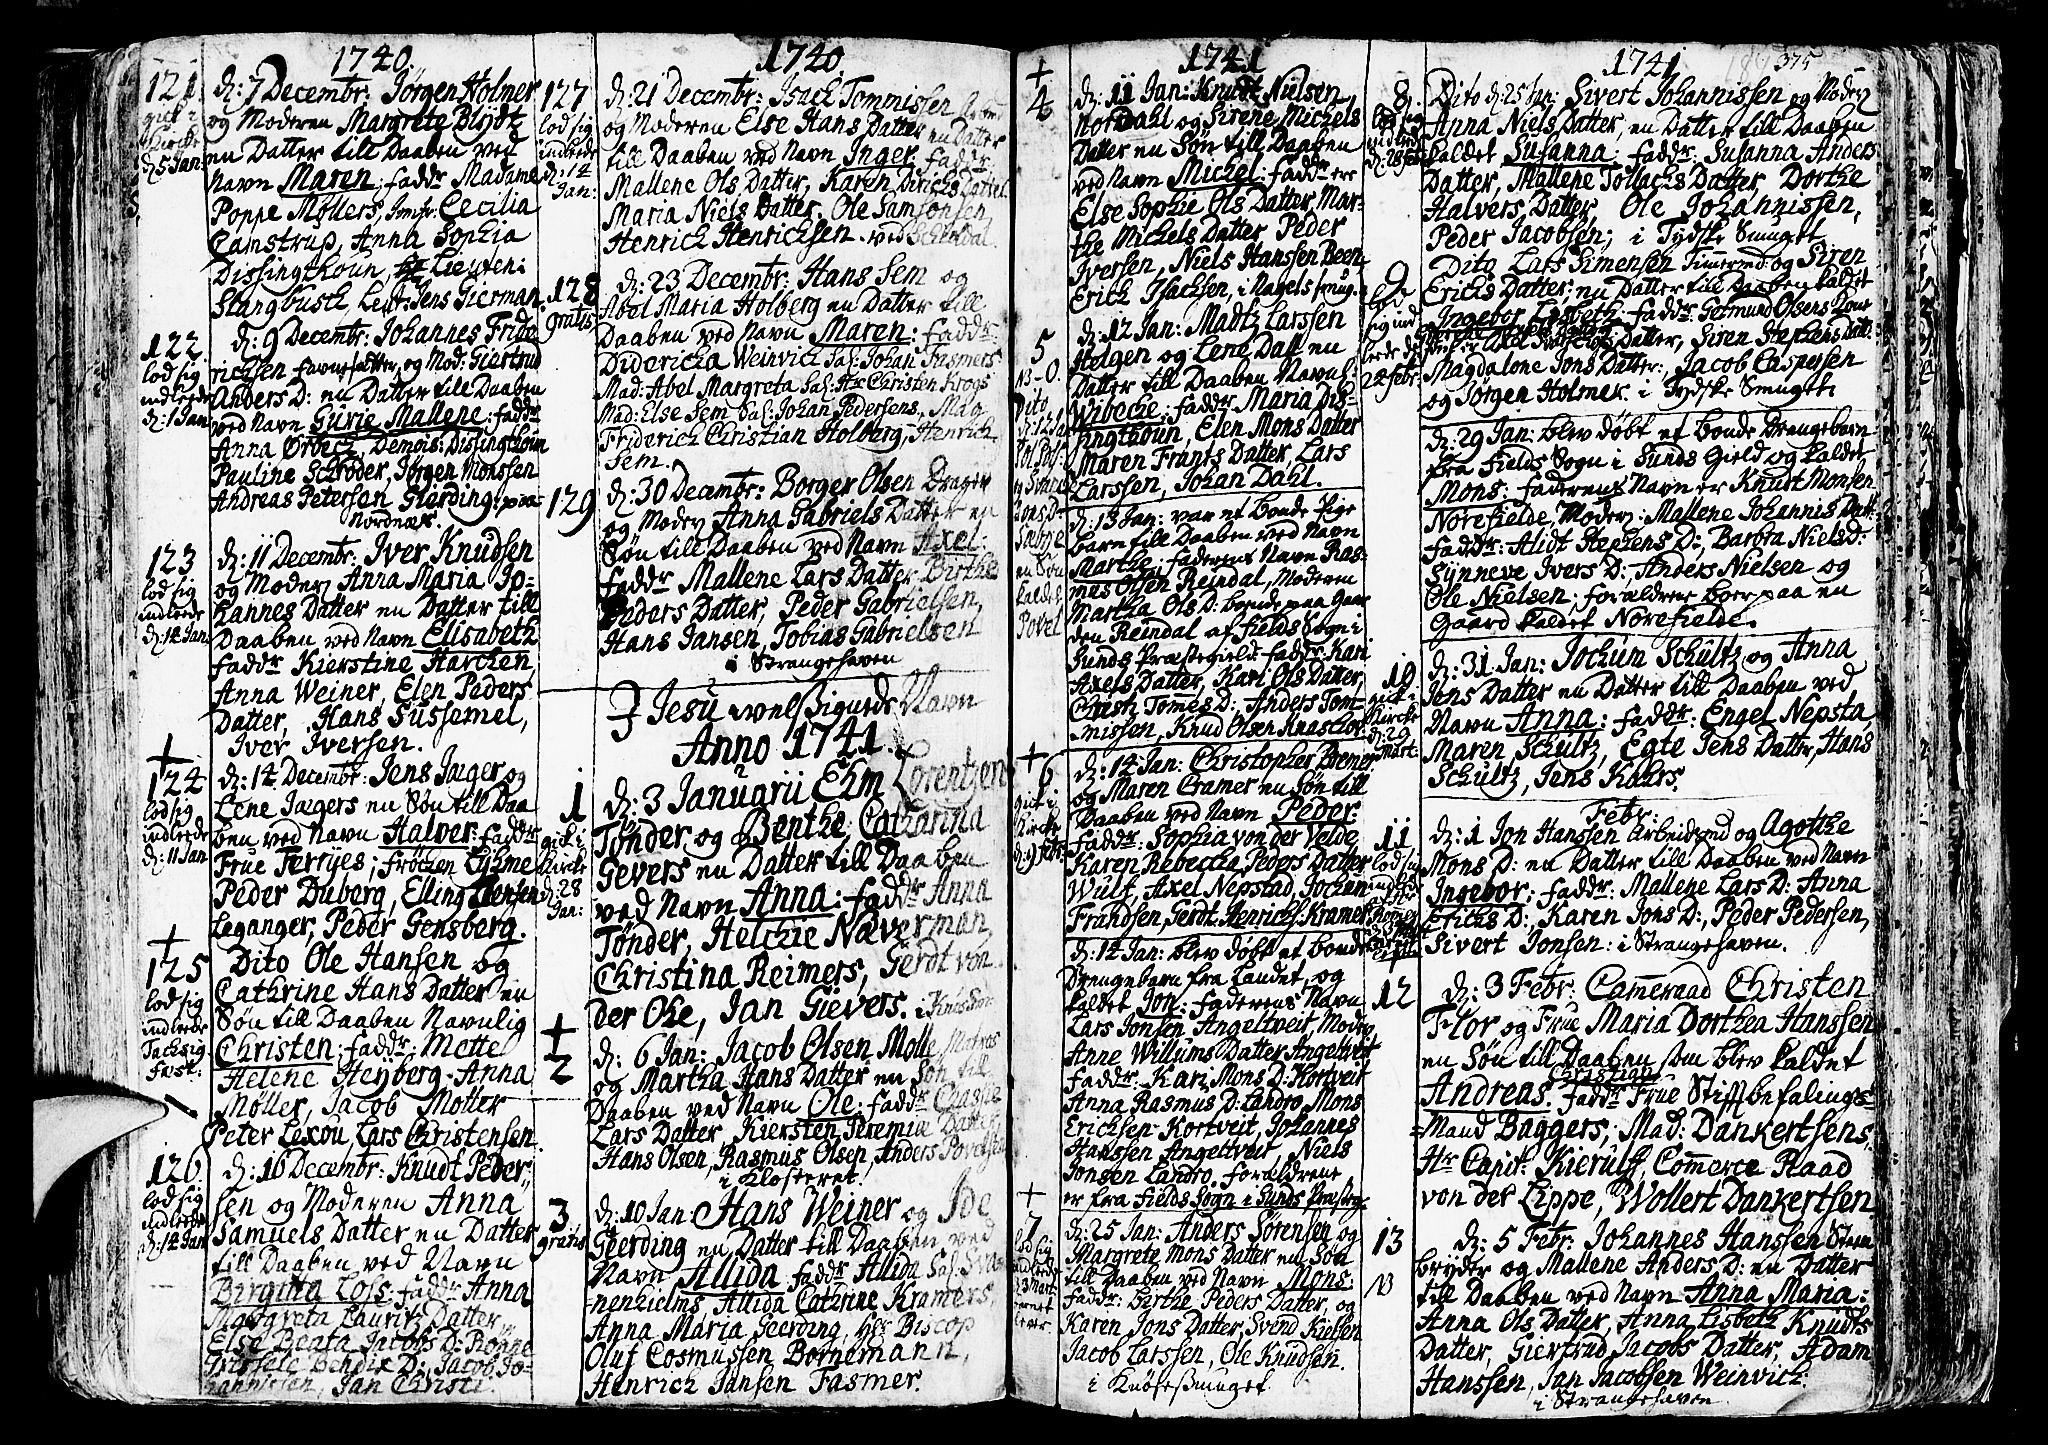 1740.
121.
gick i
Kircke
d: 5 Jan:
d: 7 Decembr: Jørgen Holmer
og Moderen Margrete Blydt
en Datter till Daaben ved
Navn Maren; faddr Madame
Poppe Møllers, Jomfr: Cecilia
Camstrup, Anna Sophia
Dissingthoun, Hr Lieuten:
Stangbusch, Leut: Jens Gierman.
122.
lod sig
indlede
d: 1 Jan
d: 9 Decembr: Johannes Fride
richsen og Mod: Giertrud
Anders D: en Datter till Daaben
ved Navn Gurie Mallene; faddr
Anna Ørbech, Demois: Dissingthoun
Pauline Schrøder, Jørgen Monssen
Andreas Petersen Gierding. paa
Nordnæs.
123
lod sig
indlede
d: 14 Jan
d: 11 Decembr: Iver Knudsen
og Moderen Anna Maria Jo-
hannes Datter en Datter till
Daaben ved Navn Elisabeth
faddr Kierstine Harchen,
Anna Weiner, Elen Peders
Datter, Hans Süssemel,
Iver Iversen.
+
124
lod sig
indlede
d: 11 Jan
d: 14 Decembr: Jens Jæger og
Lene Jægers en Søn till Daa
ben ved Navn Halver: faddr
Frue Tertjes; Frøchen
Peder Duberg, Elling Jensen
Leganger, Peder Gensberg.
+
125
lod sig
indlede
Dito Ole Hansen og
Cathrine Hans Datter en
Søn till Daaben Navnlig
Christen: faddr: Mette
Helene Heyberg, Anna
Møller, Jacob Møller
Peter Lexou, Lars Christensen
126.
lod sig
indlede
d: 14 Jan
d: 16 Decembr: Knudt Peder-
sen og Moderen Anna
Samuels Datter en Datter
till Daaben ved Navn
Birgitta Lois: faddr Anna
Margreta Lauritz Datter
Else Beata Jacobs D: Ronne
Bendix D: Jacob Jo-
hannissen, Jan Christi.
1740
127
lod sig
indlede
d: 14
Jan:
d: 21 Decembr: Isach Tommissen
og Moderen Else Hans Datter en Datter
till Daaben ved Navn Inger: faddr:
Mallene Ols Datter, Karen Dirichs Datter
Maria Niels Datter. Ole Samsonsen,
Henrich Henrichsen. ved
128
gratis
d: 23 Decembr: Hans Sem og
Abel Maria Holberg en Datter till
Daaben ved Navn Maren: faddr:
Didericha Weinvich Sal: Johan Fasmers
Mad: Abel Margreta Sal: Hr Christen Krogs
Mad: Else Sem Sal: Johan Pedersens, Mag
Friderich Christian Holberg, Henrich
Sem.
129
d: 30 Decembr: Borger Olsen Drager
og Moder Anna Gabriels Datter en
Søn till Daaben ved Navn Axel:
faddr Mallene Lars Datter Birthe
Peders Datter, Peder Gabrielsen,
Hans Jansen, Tobias Gabrielsen
i Strangehaven
J Jesu velsignede Navn
Anno 1741.
1
gick i
Kircke
d: 28
Jan:
d: 3 Januarii Ehm Lorentzen
Tønder, og Benthe Catharina
Gevers en Datter till Daaben
ved Navn Anna: faddr Anna
Tønder, Helchie Næverman,
Christina Reimers, Gerdt von
der Ohe, Jan Gievers. i
+
2
d: 6 Jan: Jacob Olsen Molle Matros
og Martha Hans Datter en Søn till
Daaben ved Navn Ole: faddr
Lars Datter, Kiersten Jeremiæ Datter
Hans Olsen, Rasmus Olsen, Anders Povelsen
i Klosteret.
3.
gratis
d: 10 Jan: Hans Weiner og Ide
Geerding en Datter till Daaben ved
Navn Allida faddr Allida Sal: Svan
nenhielms, Allida Cathrine Kramers,
Anna Maria Geerding, Hr Biscop
Oluf Cosmussen Bornemann,
Henrich Jansen Fasmer.
1741
+
4
d: 11 Jan: Knudt Nielsen
Nordahl og Sirene Michels
Datter en Søn till Daaben
ved Navn Michel: faddr ere
Else Sophie Ols Datter, Mar-
the Michels Datter Peder
Iversen, Niels Hanssen Been
Erich Isachsen, i Nagelsmug.
5
d: 12 Jan: Madtz Larssen
Helgen og Lene Dall en
Datter till Daaben Navnl:
Wibeche; faddr: Maria Dis-
singthoun, Elen Mons Datter
Maren Frants Datter Lars
Larssen, Johan Dahl.
N3-0.
Dito
en Søn
kaldet
Povel
d: 13 Jan: var et bonde Pige
barn till Daaben ved Navn
Marthe; faderens Navn Ras-
mus Olsen Reindal, Moderen
Martha Ols D: boende paa Gaar
den Reindal af Fields Sogn i
Sunds Præstegield: faddr: Kari
Axels Datter, Kari Ols Datter,
Christi Tommes D: Anders Tom-
missen, Knud Olsen Knaschor.
+
6
gick i
Kircke
d: 9 Febr
d: 14 Jan: Christopher Bremer
og Maren Cramer en Søn till
Daaben ved Navn Peder:
faddr: Sophia von der Velde
Karen Rebeccha Peders Datter
Wult, Axel Nepstad, Jochen
Frandsen, Gerdt Henrichs: Kramer
d: 14 Jan: blev døbt et bonde
Drengebarn fra Landet, og
kaldet Jon: faderens Navn
Lars Jonsen Angeltveit, Moder
Anne Willums Datter Angeltveit
faddr: Kari Mons D: Kortveit
Anna Rasmus D: Landro Mons
Erichsen Kortveit, Johannes
Hanssen Angeltveit, Niels
Jonsen Landro, forældrene
er fra Fields Sogn i Sunds Præsteg:
+
7
lod sig
indlede
d: 25 Jan: Anders Sørensen og
Margrete Mons Datter en Søn
till Daaben ved Navn Mons:
faddr: Birthe Peders Datter, og
Karen Jons Datter, Svend Kielsen
Jacob Larssen, Ole Knudsen.
i Knøsesmuget.
1741
375
8.
lod sig
indlede
d: 28 feb
Dito d: 25 Jan: Sivert Johannissen og Moder
Anna Niels Datter, en Datter till Daaben
kaldet Susanna: faddr: Susanna Anders
Datter, Mallene Tollachs Datter, Dorthe
Halvers Datter, Ole Johannissen,
Peder Jacobsen; i Tydske Smuget
9
lod
sig ind
lede d:
22 febr.
Dito Lars Simensen Timmermd: og Siren
Erichs Datter; en Datter till Daaben kaldet
Ingebor Lisbeth: faddr: Germund Olsens Kone
Datter, Siren Stephens Datt:
Magdalone Jons Datter: Jacob Caspersen
og Jørgen Holmer. i Tydske Smuget.
d: 29 Jan: blev døbt et bonde Drengebarn
fra Fields Sogn i Sunds Gield og kaldet
Mons: faderens Navn er Knudt Monsen
Norefielde, Moder: Mallene Johannis Datt:
faddr: Alidt Stephens D:, Barbra Niels D:
Synneve Ivers D:, Anders Nielsen og
Ole Nielsen; forældrene boer paa en
Gaard kaldet Norefielde.
10
gick i
Kircke
d: 29
Mart:
d: 31 Jan: Jochum Schultz og Anna
Jens Datter en Datter till Daaben ved
Navn Anna: faddr: Engel Nepsta
Maren Schultz, Egte Jens Datter, Hans
Schultz, Jens Kahrs.
Febr:
11
lod sig
d: 1 Jon Hansen Arbeidsmd og Agothe
Mons D: en Datter till Daaben ved Navn
Ingebor; faddr: Mallene Lars D: Anna
Erichs D:, Karen Jons D:, Peder Pedersen,
Sivert Jonsen: i Strangehaven.
12
d: 3 Febr: Cammeraad Christen
Flor og Frue Maria Dorthea Hanssen
en Søn till Daaben som blev kaldet
Andreas Christian. faddr Frue Stiftbefalings-
Mand Baggers, Mad: Dankertsens,
Hr Capit: Kierulf, Commerce Raad
von der Lippe, Wollert Dankertsen
13
N3
d: 5 Febr: Johannes Hanssen Steen
bryder og Mallene Anders D: en Datter
till Daaben ved Navn Anna Maria:
Anna Ols Datter, Anna Lisbeth Knudts
Datter, Giertrud Jacobs Datter, Adam
Hanssen, Jan Jacobsen Weinvich:
i Strangehaven